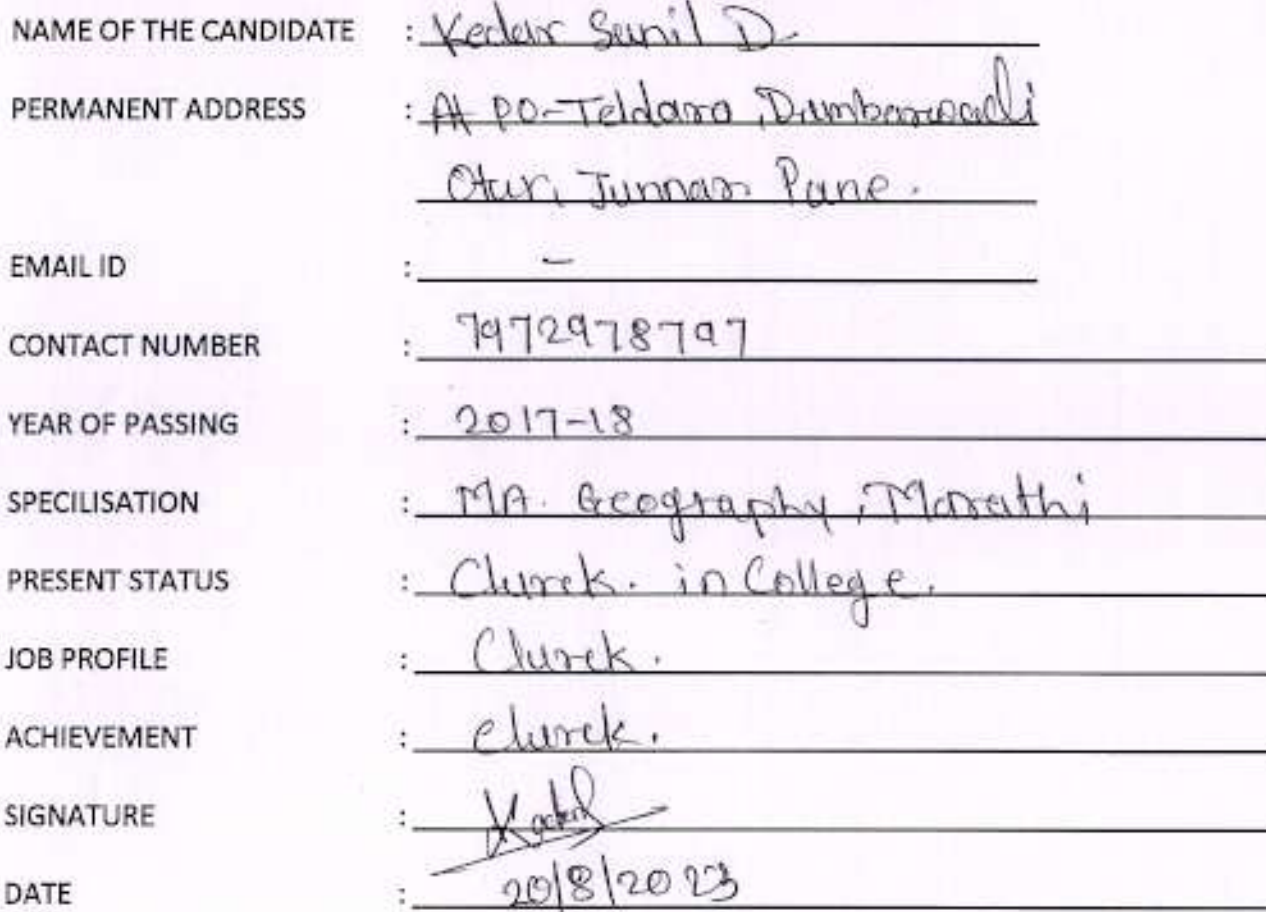 NAME OF THE CANDIDATE : Kedar Sunil D.
PERMANENT ADDRESS : At PO-Teldara, Dumbarwadi
Otur, Junnar Pune.
EMAIL ID : -
CONTACT NUMBER : 7972978797
YEAR OF PASSING : 2017-18
SPECILISATION : MA. Geography, Marathi
PRESENT STATUS : Clurek. in College.
JOB PROFILE : Clurek.
ACHIEVEMENT : Clurek.
SIGNATURE : Kedar
DATE : 20/8/2023